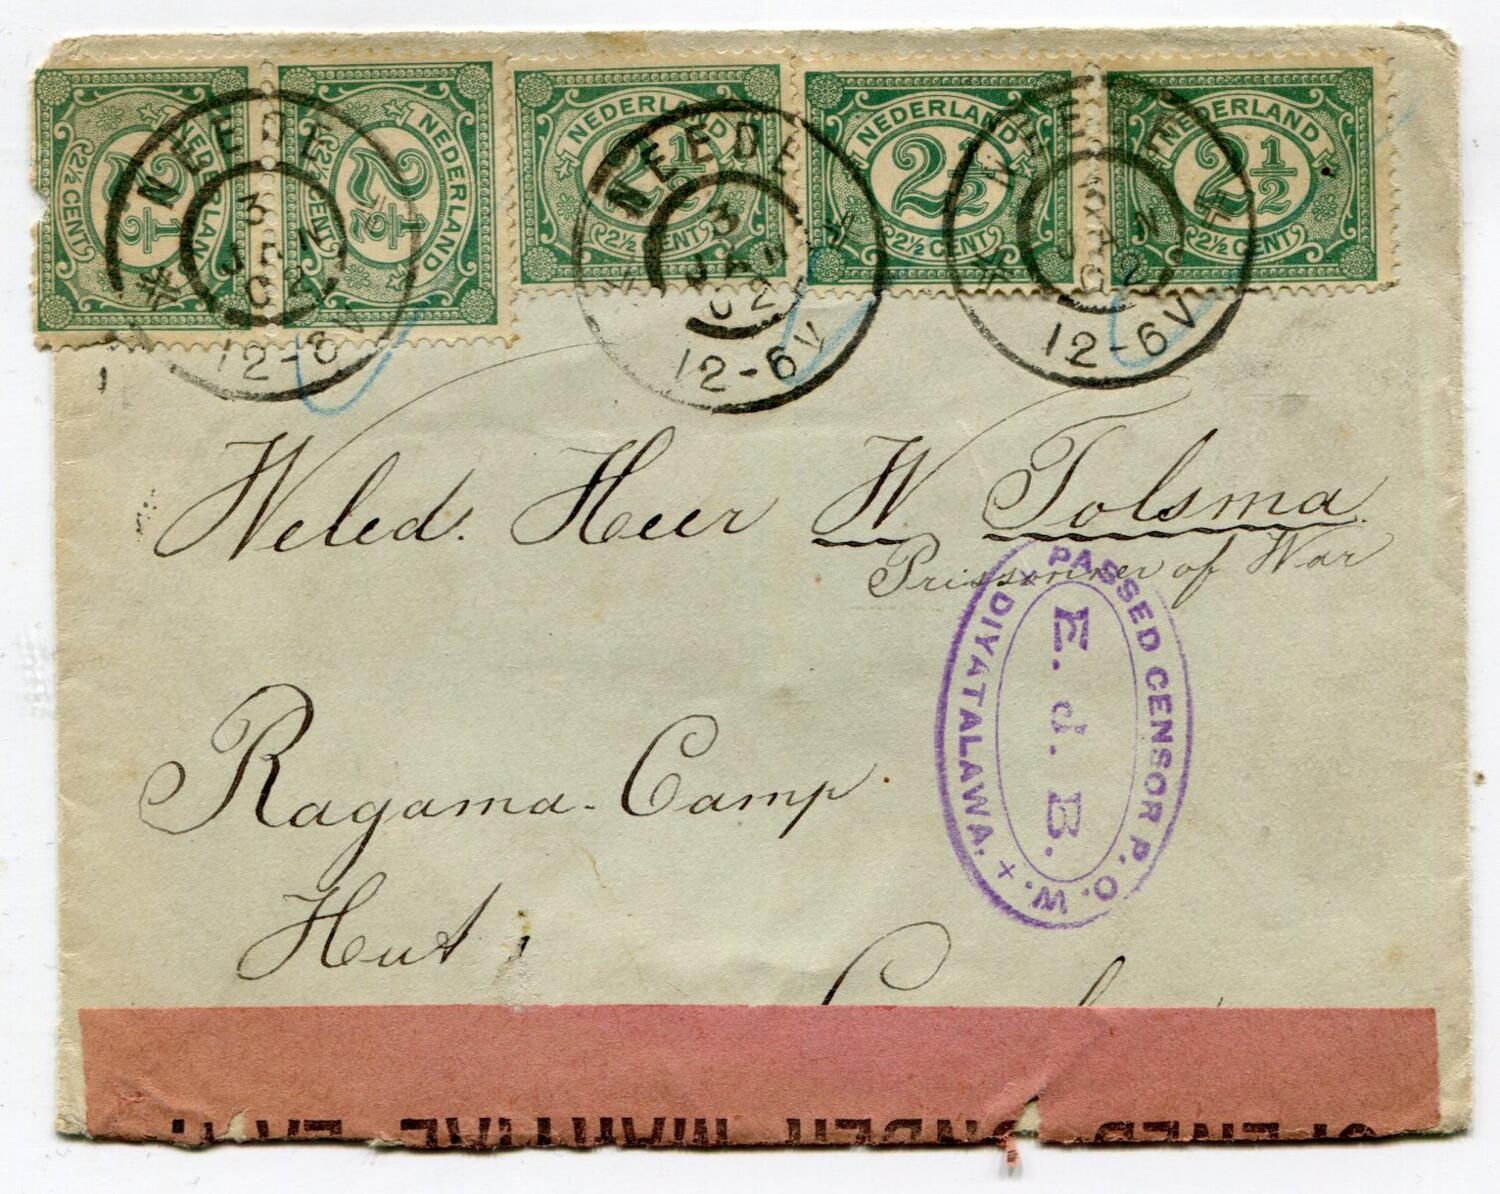 NEDERLAND
2½
2½ CENT
NEDERLAND
2½
2½ CENT
NEDERLAND
2½
2½ CENT
NEDERLAND
2½
2½ CENT
NEDERLAND
2½
2½ CENT
NEEDE
3
JAN
02
12-6V
NEEDE
3
JAN
02
12-6V
NEEDE
JAN
02
12-6V
Weled. Heer W Tolsma
Prissonner of War
PASSED CENSOR P.O.W.
DIYATALAWA.
E. d. B.
Ragama-Camp
Hut
OPENED UNDER MARTIAL LAW.